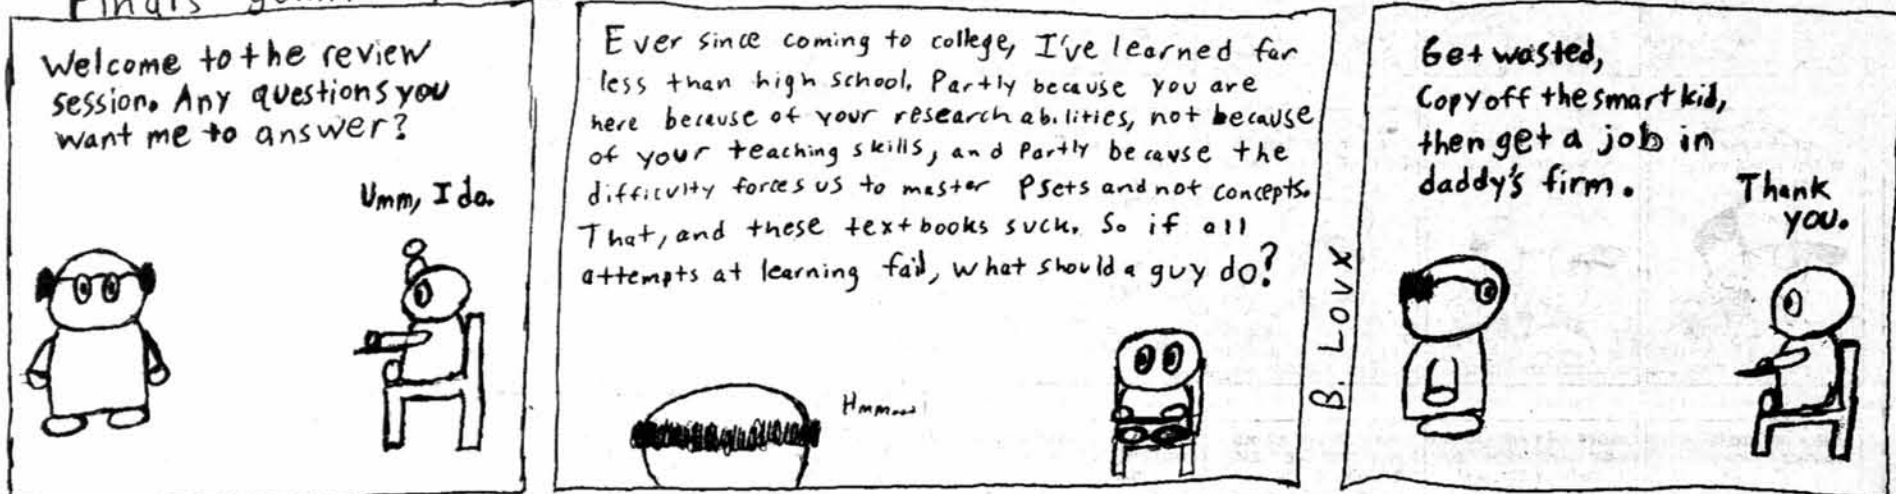 Finals
Welcome to the review
session. Any questions you
want me to answer?
Umm, I do.
Ever since coming to college, I've learned far
less than high school. Partly because you are
here because of your research abilities, not because
of your teaching skills, and Partly because the
difficulty forces us to master Psets and not concepts.
That, and these textbooks suck. So if all
attempts at learning fail, what should a guy do?
Hmm...
B. Loux
Get wasted,
Copy off the smart kid,
then get a job in
daddy's firm.
Thank
you.